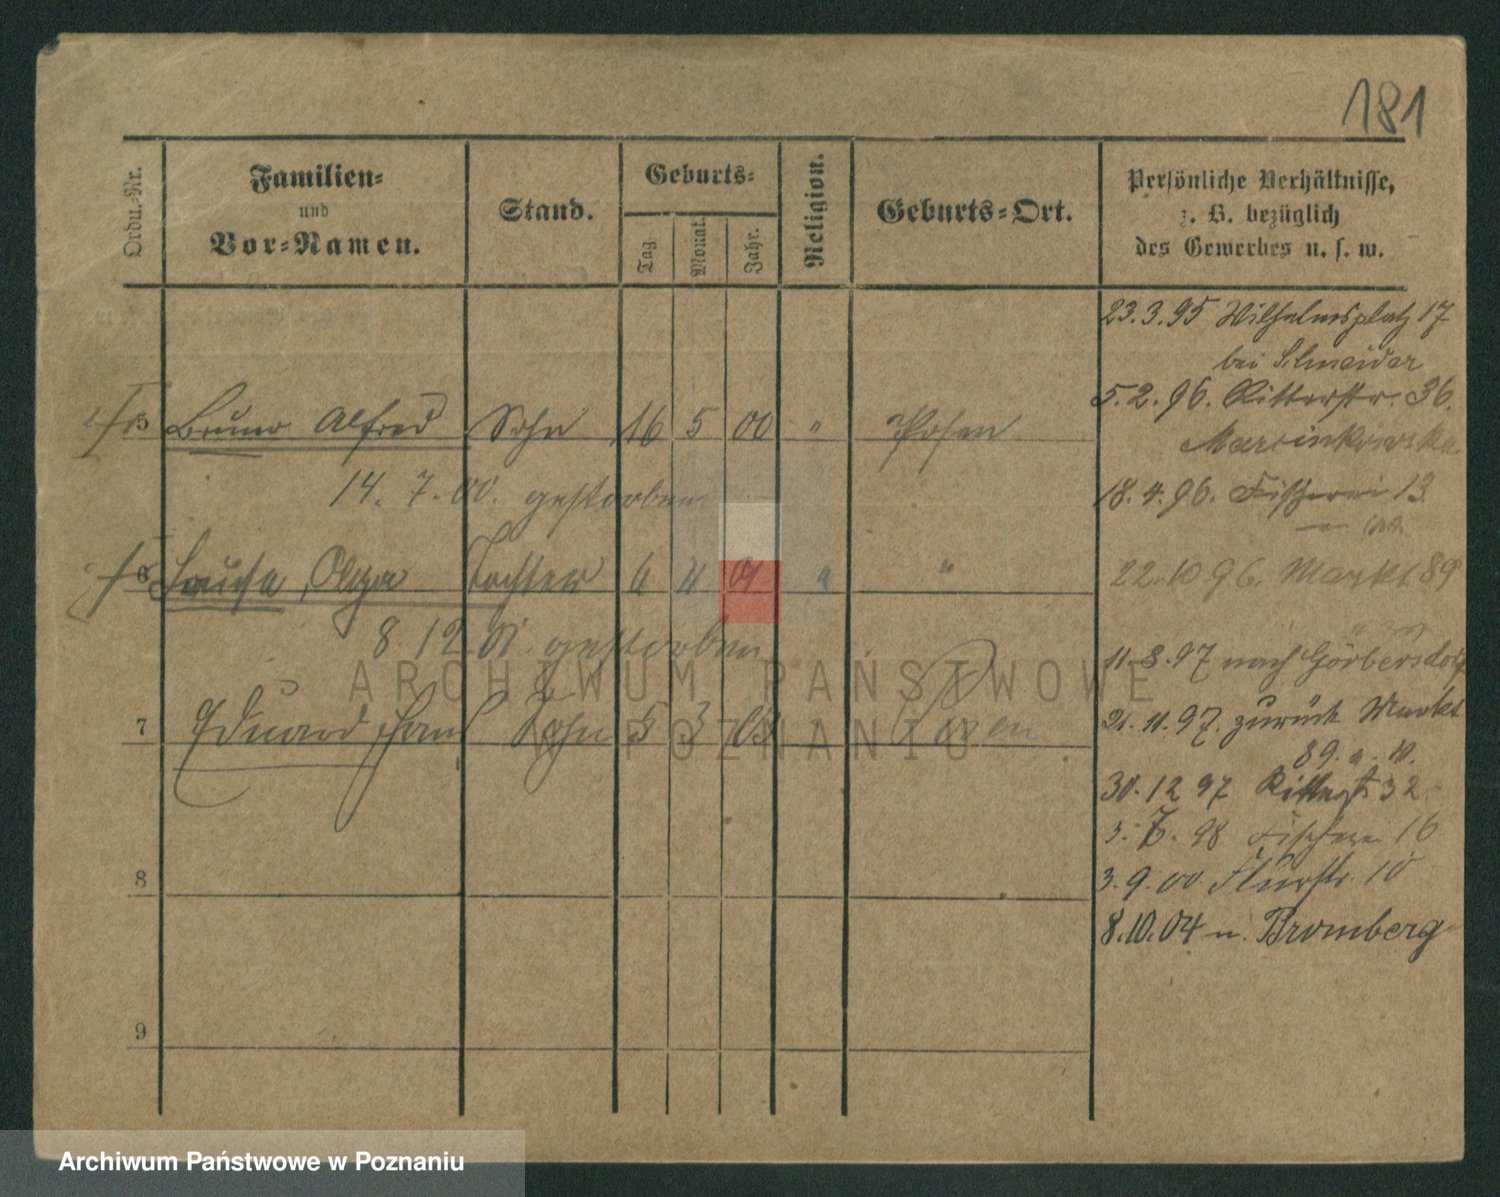 181
Ordn.-Nr.
Familien-
und
Vor-Namen.
Stand.
Geburts-
Tag.
Monat.
Jahr.
Religion.
Geburts-Ort.
Persönliche Verhältnisse,
z. B. bezüglich
des Gewerbes u. s. w.
5 Bruno Alfred Sohn 16 5 00 " Posen
14. 7. 00. gestorben
6 Louise, Olga Tochter 6 11 01 " "
8. 12. 01. gestorben
7 Eduard Sohn 5 3 03 Posen
8
9
23. 3. 95 Wilhelmsplatz 17
bei Schneider
5. 2. 96. Ritterstr. 36.
Marcinkowska
18. 4. 96. Fischerei 13
22. 10 96. Markt 89
11. 8. 97 nach Görbersdorf
21. 11. 97. zurück Markt
89.
30. 12 97 Ritterst 32
98 Fischerei 16
3. 9. 00 Flurstr. 10
8. 10. 04 n. Bromberg
ARCHIWUM PAŃSTWOWE
W POZNANIU
Archiwum Państwowe w Poznaniu